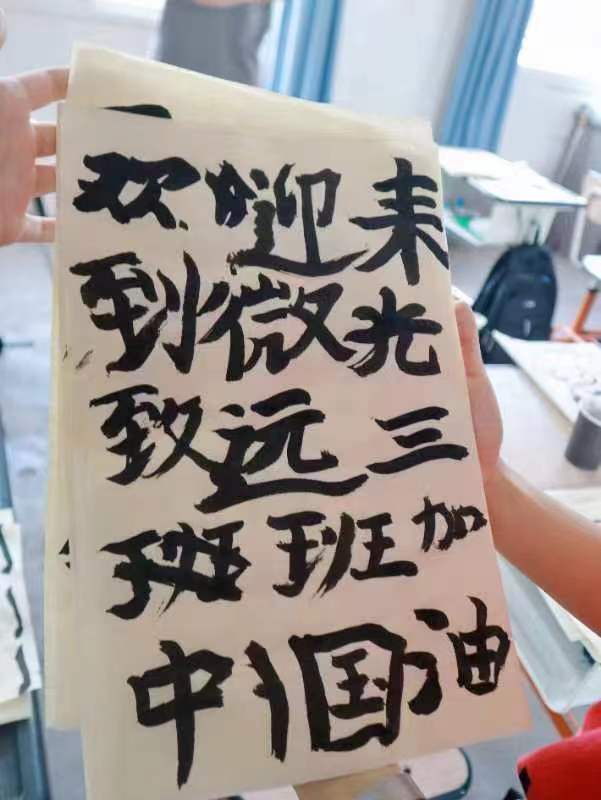 欢迎来
到微光
致远三
斑班加
中国油